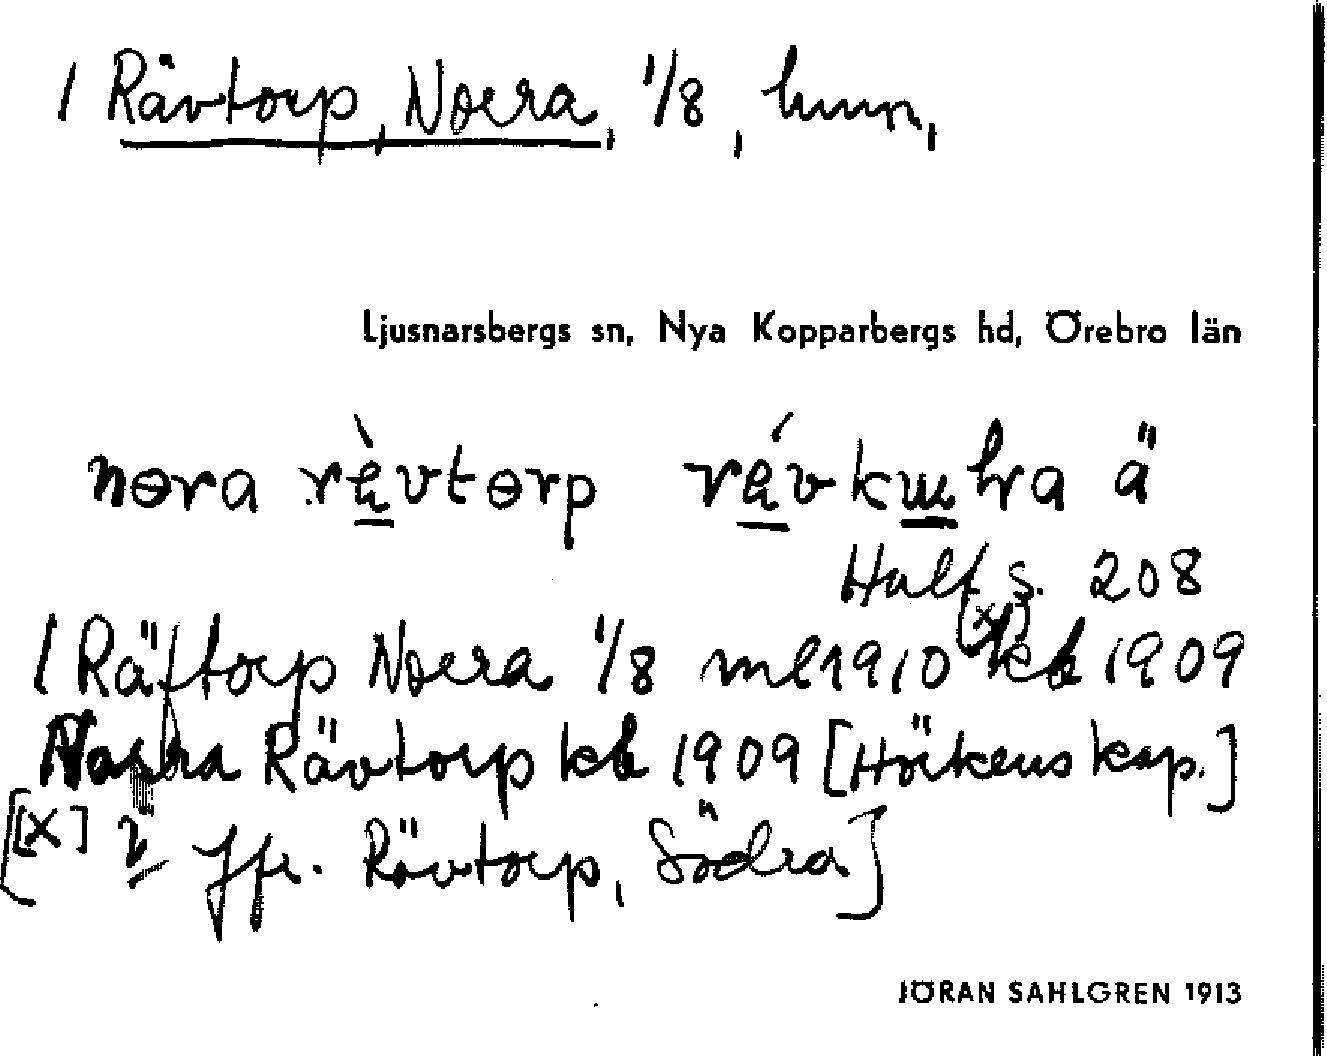 1 Rävtorp, Norra, 1/8, hmn,
Ljusnarsbergs sn, Nya Kopparbergs hd, Örebro län
nora rävtorp rävkulra ä
Half s. 208
1 Räftorp Norra 1/8 ml 1910 [x] kb 1909
Norra Rävtorp kb 1909 [Hörkens kap.]
[[x] Jfr. Rävtorp, Södra]
JÖRAN SAHLGREN 1913